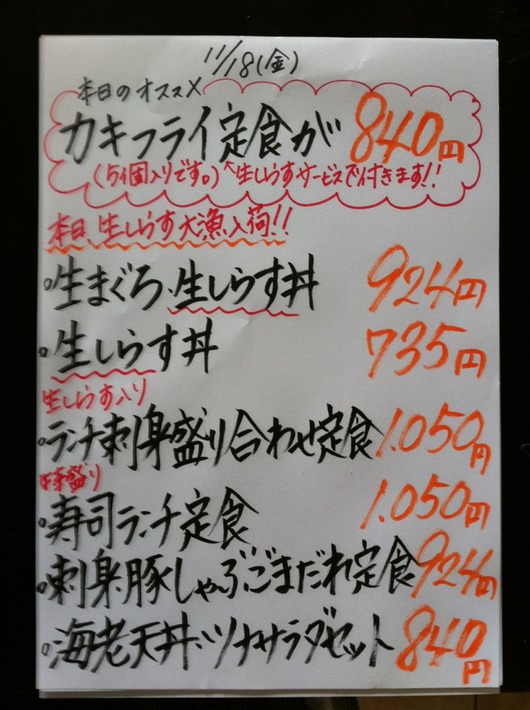 11/18(金)
本日のオススメ
カキフライ定食が 840円
(5個入りです。)^生しらすサービスで付きます!!
本日、生しらす大漁入荷!!
・生まぐろ、生しらす丼 924円
・生しらす丼 735円
生しらす入り
・ランチ刺身盛り合わせ定食 1.050円
・寿司ランチ定食 1.050円
・刺身、豚しゃぶごまだれ定食 924円
・海老天丼、ツナサラダセット 840円